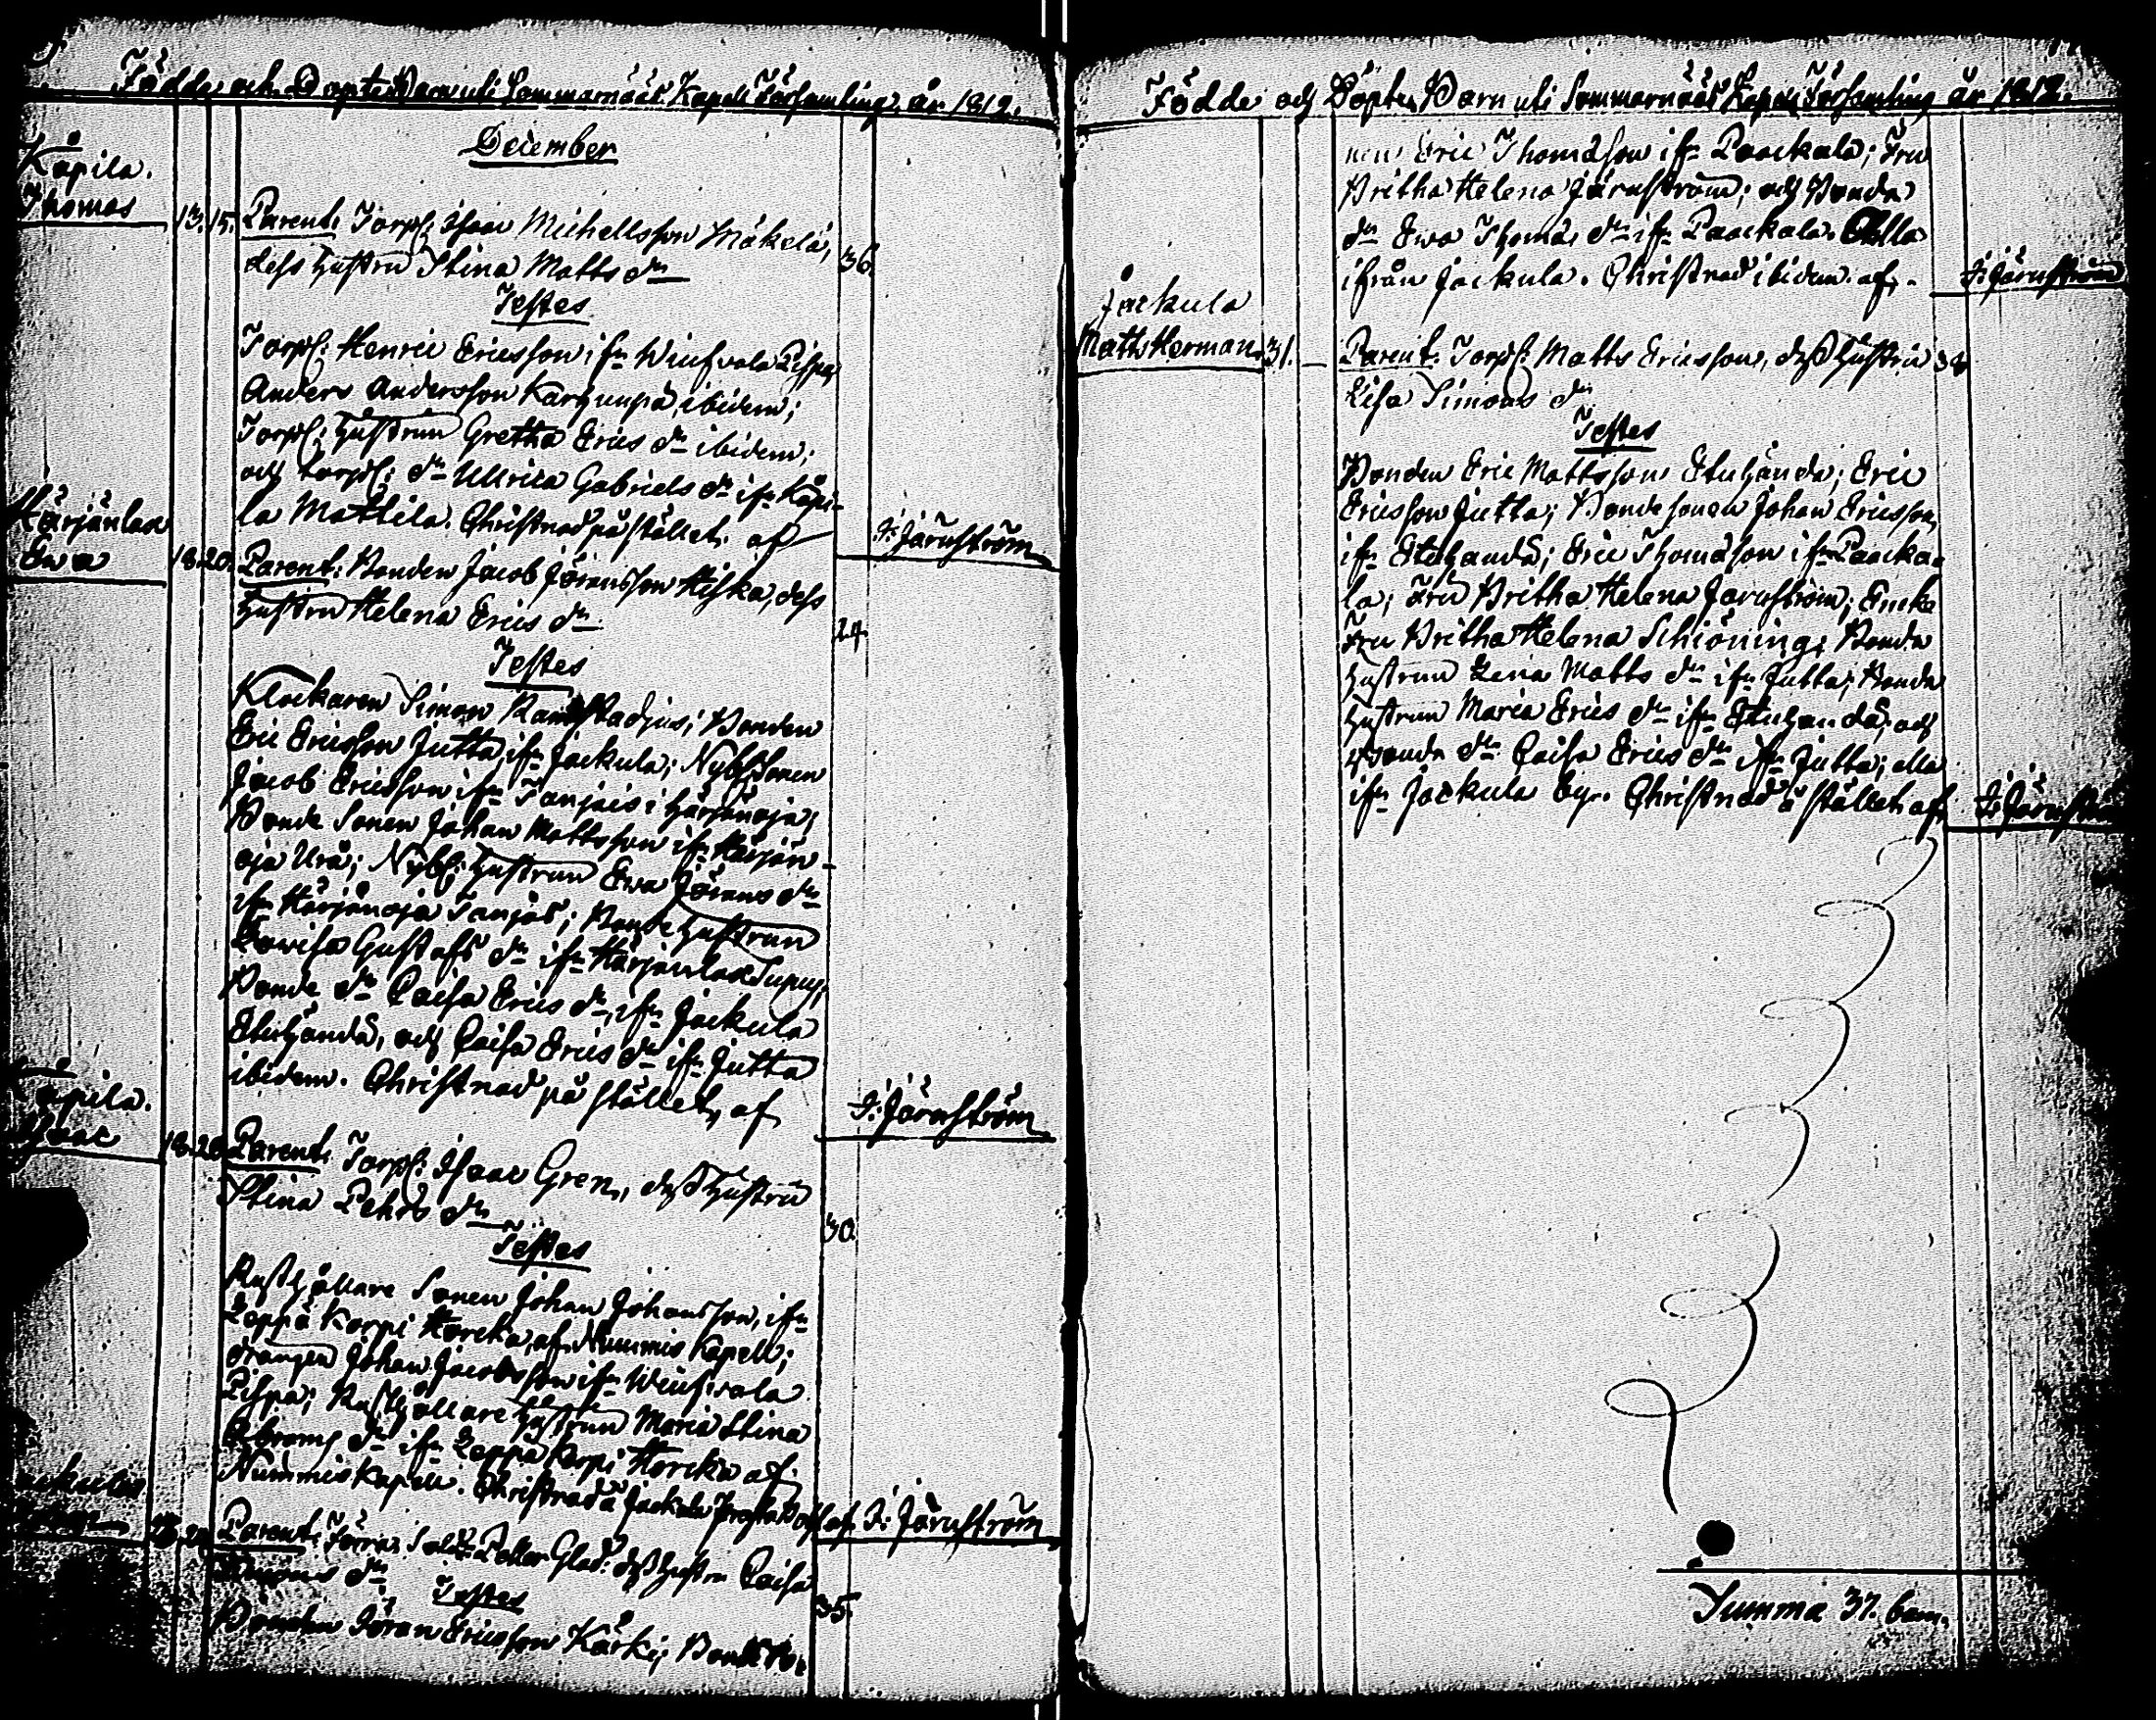 Födde och Döpte Barn uti Sommarnääs Kapell Församling år 1812.
December
Kåpila.
Thomas
13. 15. Parent: Torp: Isaac Michellsson Mäkelä,
dess hustru Stina Matts dr 36.
Testes
Torp: Henric Ericsson ifr Wiufvala Pispa,
Anders Andersson Karhunpä, ibidem;
Torp: hustrun Gretha Erics dr ibidem;
och torp: dr Ullrica Gabriels dr ifr Kåpi-
la Mattila. Christnad på stället. af J: Järnström
Härjänlax
Ewa
18. 20. Parent: Bonden Jacob Jöransson Hiska, dess
hustru Helena Erics dr 24.
Testes
Klockaren Simon; Bonden
Eric Ericsson Jutta, ifr Jackula; Nyb: Sonen
Jacob Ericsson ifr Tanjais i Härjänoja;
Bonde Sonen Johan Mattsson ifr Härjän-
oja Urä; Nyb: hustrun Ewa Jörans dr
ifr Härjänoja Tanjas; Bonde hustrun
Lowisa Gustafs dr ifr Härjänlax
Bonde dr Caisa Erics dr ifr Jackula
Stuhandå, och Caisa Erics dr ifr Jutta
ibidem. Christnad på stället, af J: Järnström
Kåpila.
Isaac
18. 20. Parent: Torp: Isaac Gren, dess hustru
Stina Pehrs dr 30.
Testes
Rusthållare Sonen Johan Johansson, ifr
Leppä Korpi Horcka, af Nummis Kapell;
drängen Johan Jacobsson ifr Wiufvala
Pispa; Rusthållare hustrun Maria Stina
Abrams dr ifr Leppä Korpi Horcka af
Nummis Kapell. Christnad å Jackula af J: Järnström
Parent: Förra Sold: Petter Glad: dess hustru Caisa
dr 35.
Testes
Bonden Jöran Ericsson Kärki; Bonde So-
Födde och Döpte Barn uti Sommarnääs Kapell Församling år 1812.
nen Eric Thomasson ifr Paackala; Fru
Britha Helena Järnström; och Bonde
dr Ewa Thomas dr ifr Paackala. Alla
ifrån Jackula. Christnad ibidem af. J: Järnström
Jackula
Math: Herman.
31. — Parent: Torp: Matts Ericsson, dess hustru
Lisa Simons dr
Testes
Bonden Eric Mattsson Stuhanda; Eric
Ericsson Jutta; Bonde sonen Johan Ericsson,
ifr Stuhandå; Eric Thomasson ifr Paacka-
la; Fru Britha Helena Jarnström; Encke
Fru Britha Helena Schiöning; Bonde
hustrun Lena Matts dr ifr Jutta; Bonde
hustrun Maria Erics dr ifr Stuhandå; och
Bonde dr Caisa Erics dr ifr Jutta; alla
ifr Jackula by. Christnad å stället af J: Järnström
Summa 37. barn.